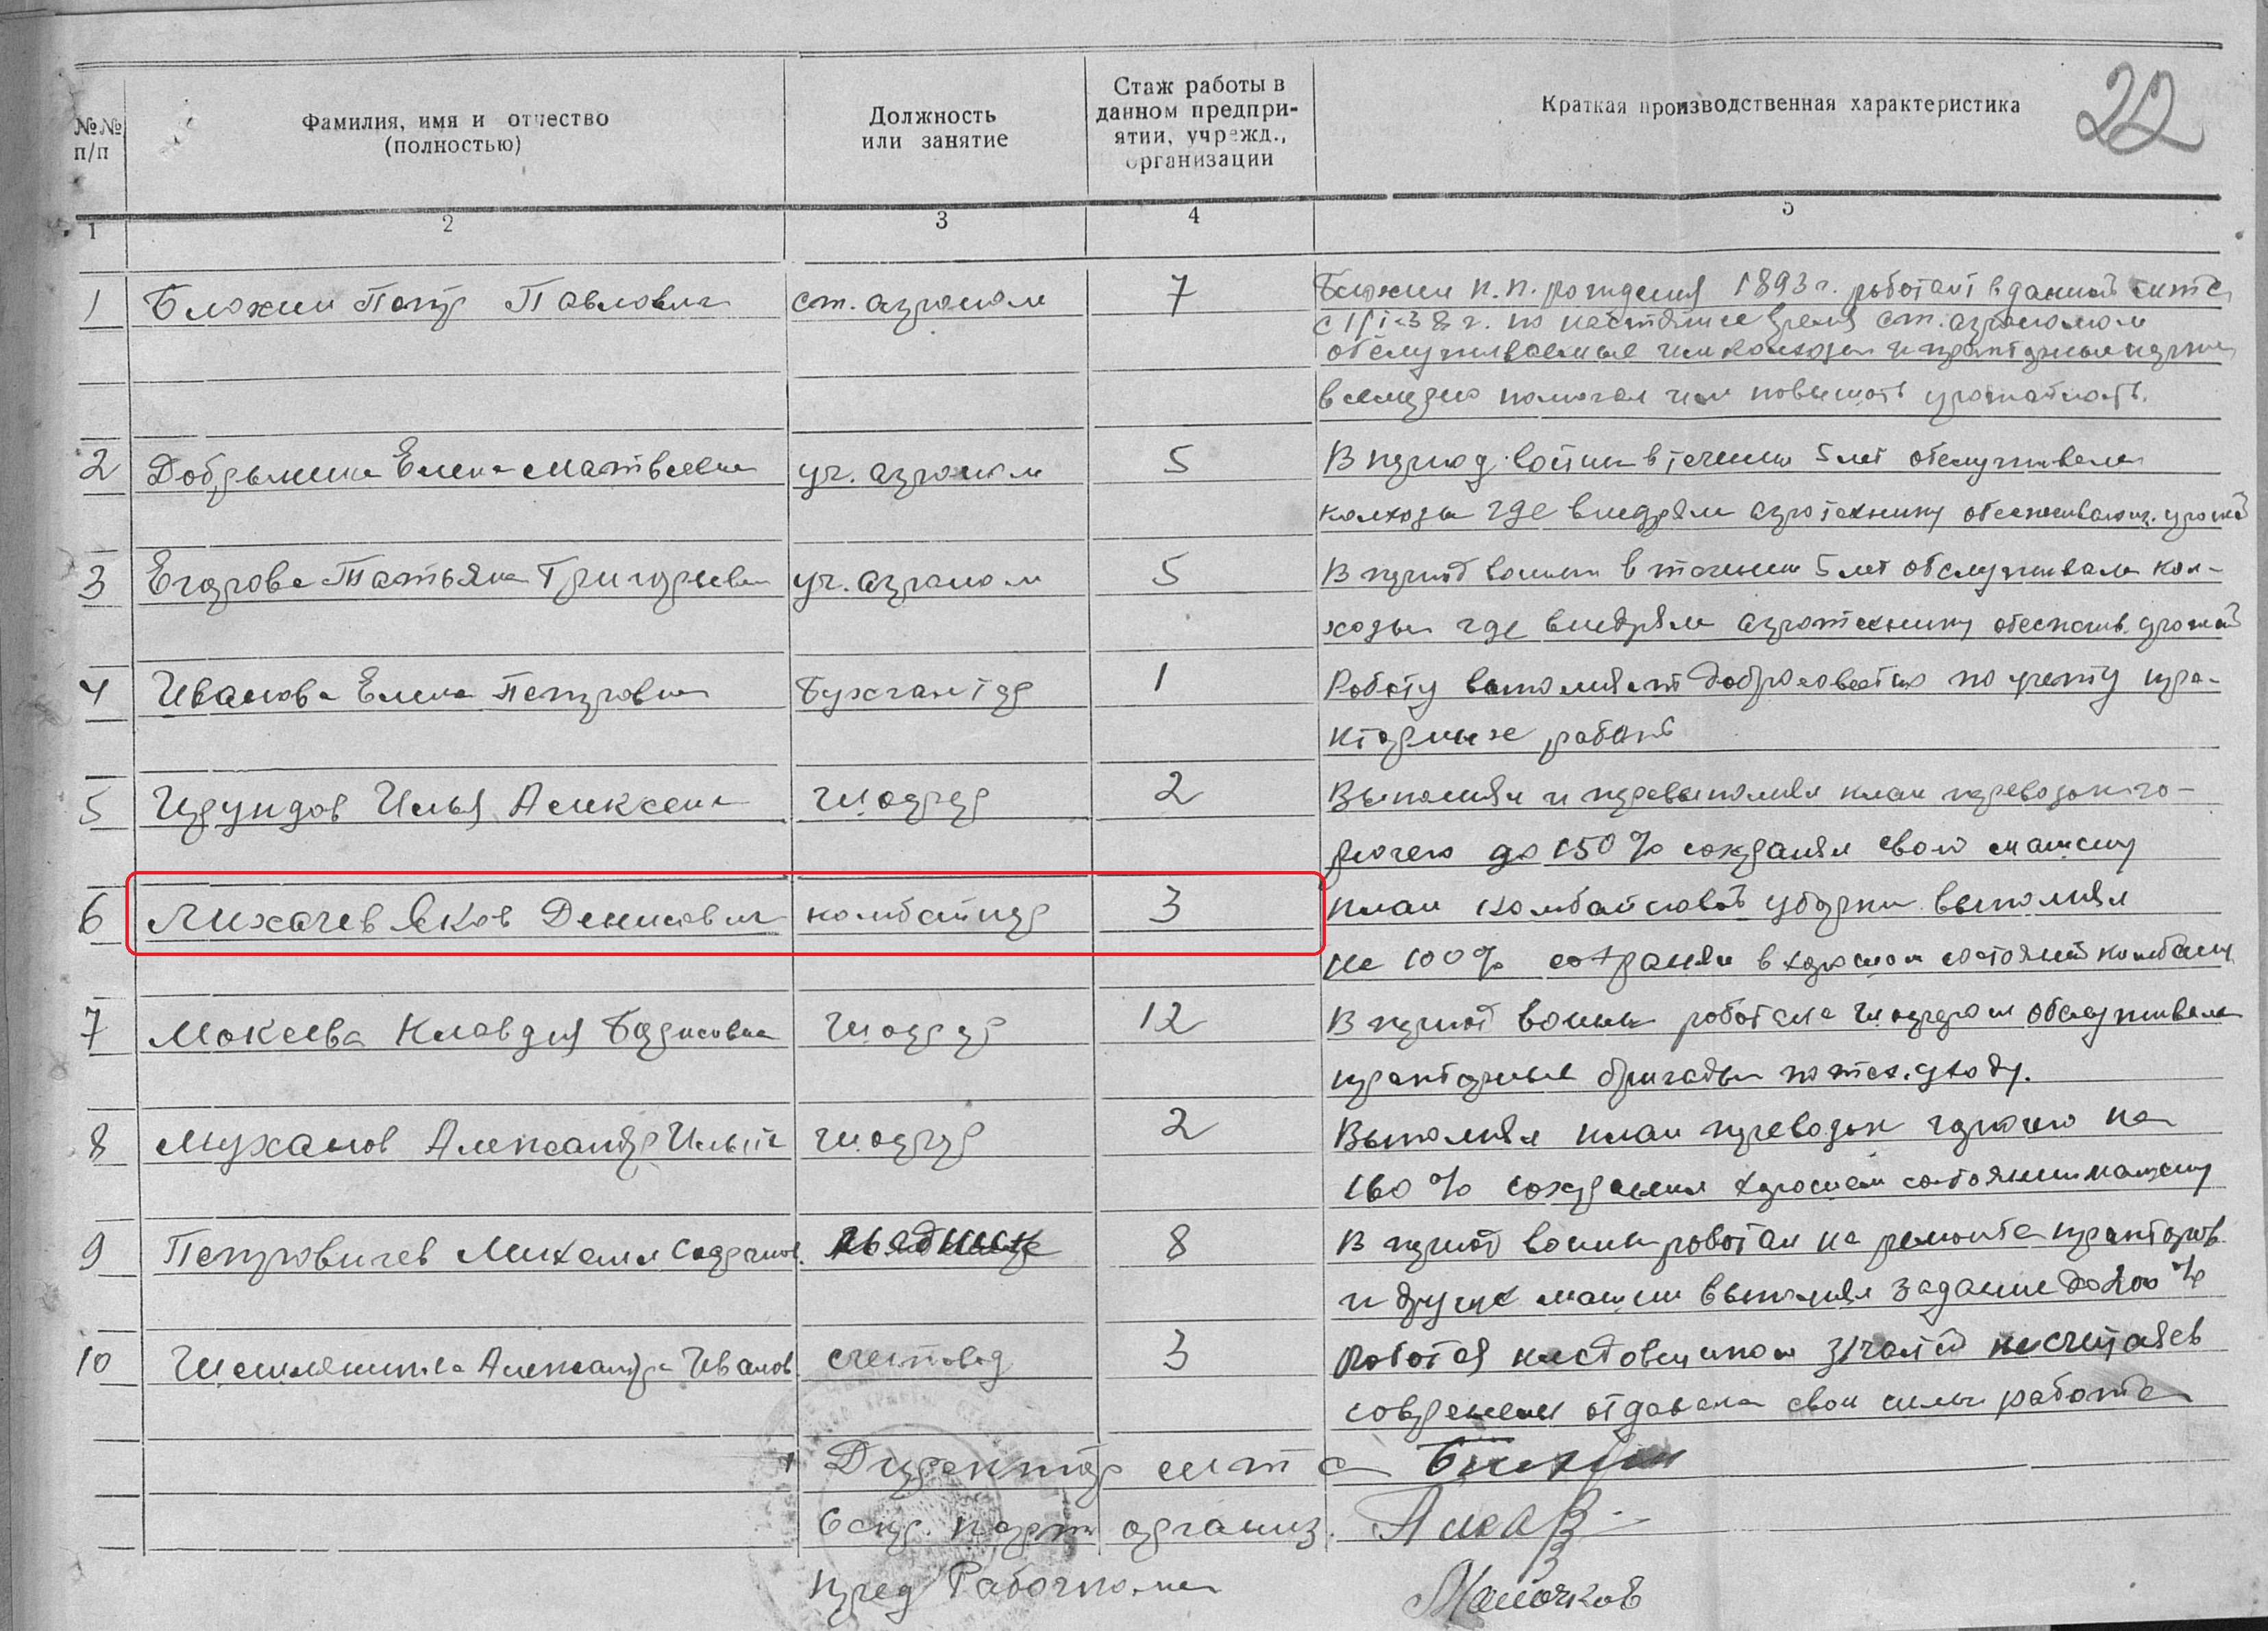 22
№№ п/п
Фамилия, имя и отчество
(полностью)
Должность
или занятие
Стаж работы в
данном предпри-
ятии, учрежд.,
организации
Краткая производственная характеристика
1 2 3 4 5
1 Блохин Петр Павлович ст. агроном 7 Блохин П.П. рождения 1893 г. работает в данной мтс
с 1938 г. по настоящее время ст. агрономом
обслуживаемые им колхозы и тракторные
всемерно помогал им повышать урожайность.
2 Добрынина Елена Матвеевна уч. агроном 5 В период войны в течении 5 лет обслуживала
колхозы где внедряли агротехнику обеспечивающ. урожай
3 Егорова Татьяна Григорьевн уч. агроном 5 В период войны в течении 5 лет обслуживала кол-
хозы где внедряла агротехнику обеспечив. урожай
4 Иванова Елена Петровна Бухгалтер 1 Работу выполняет добросовестно по учету тра-
кторных работ
5 Илья Алексеев шофер 2 Выполнял и перевыполнял план перевозок го-
рючего до 150% сохранял свою машину
6 Лихачев Яков Денисович комбайнер 3 план комбайновой уборки выполнял
на 100% сохранял в хорошем состоянии комбайн
7 Мокеева Клавдия Борисовна шофер 12 В период войны работала шофером обслуживала
тракторные бригады по тех. уходу.
8 Муханов Александр Ильич шофер 2 Выполнял план перевозок горючего на
160% сохранял хорошем состоянии машину
9 Петровичев Михаил 8 В период войны работал на ремонте тракторов
и других машин выполнял задание до 200%
10 Александра Иванов счетовод 3 Работая кладовщиком з/частей не считаясь
со временем отдавала свои силы работе
Директор мтс
Секр. парт организ.
пред Рабочкома Малочков